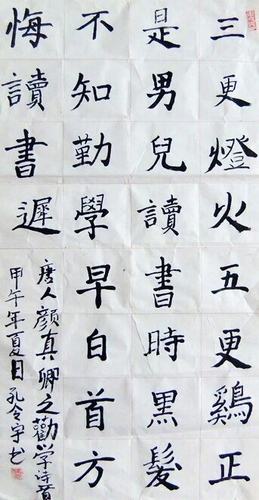 三更燈火五更鷄正
是男兒讀書時黑髮
不知勤學早白首方
悔讀書遲
唐人顔真卿之勸学詩首
甲午年夏日孔令宇书